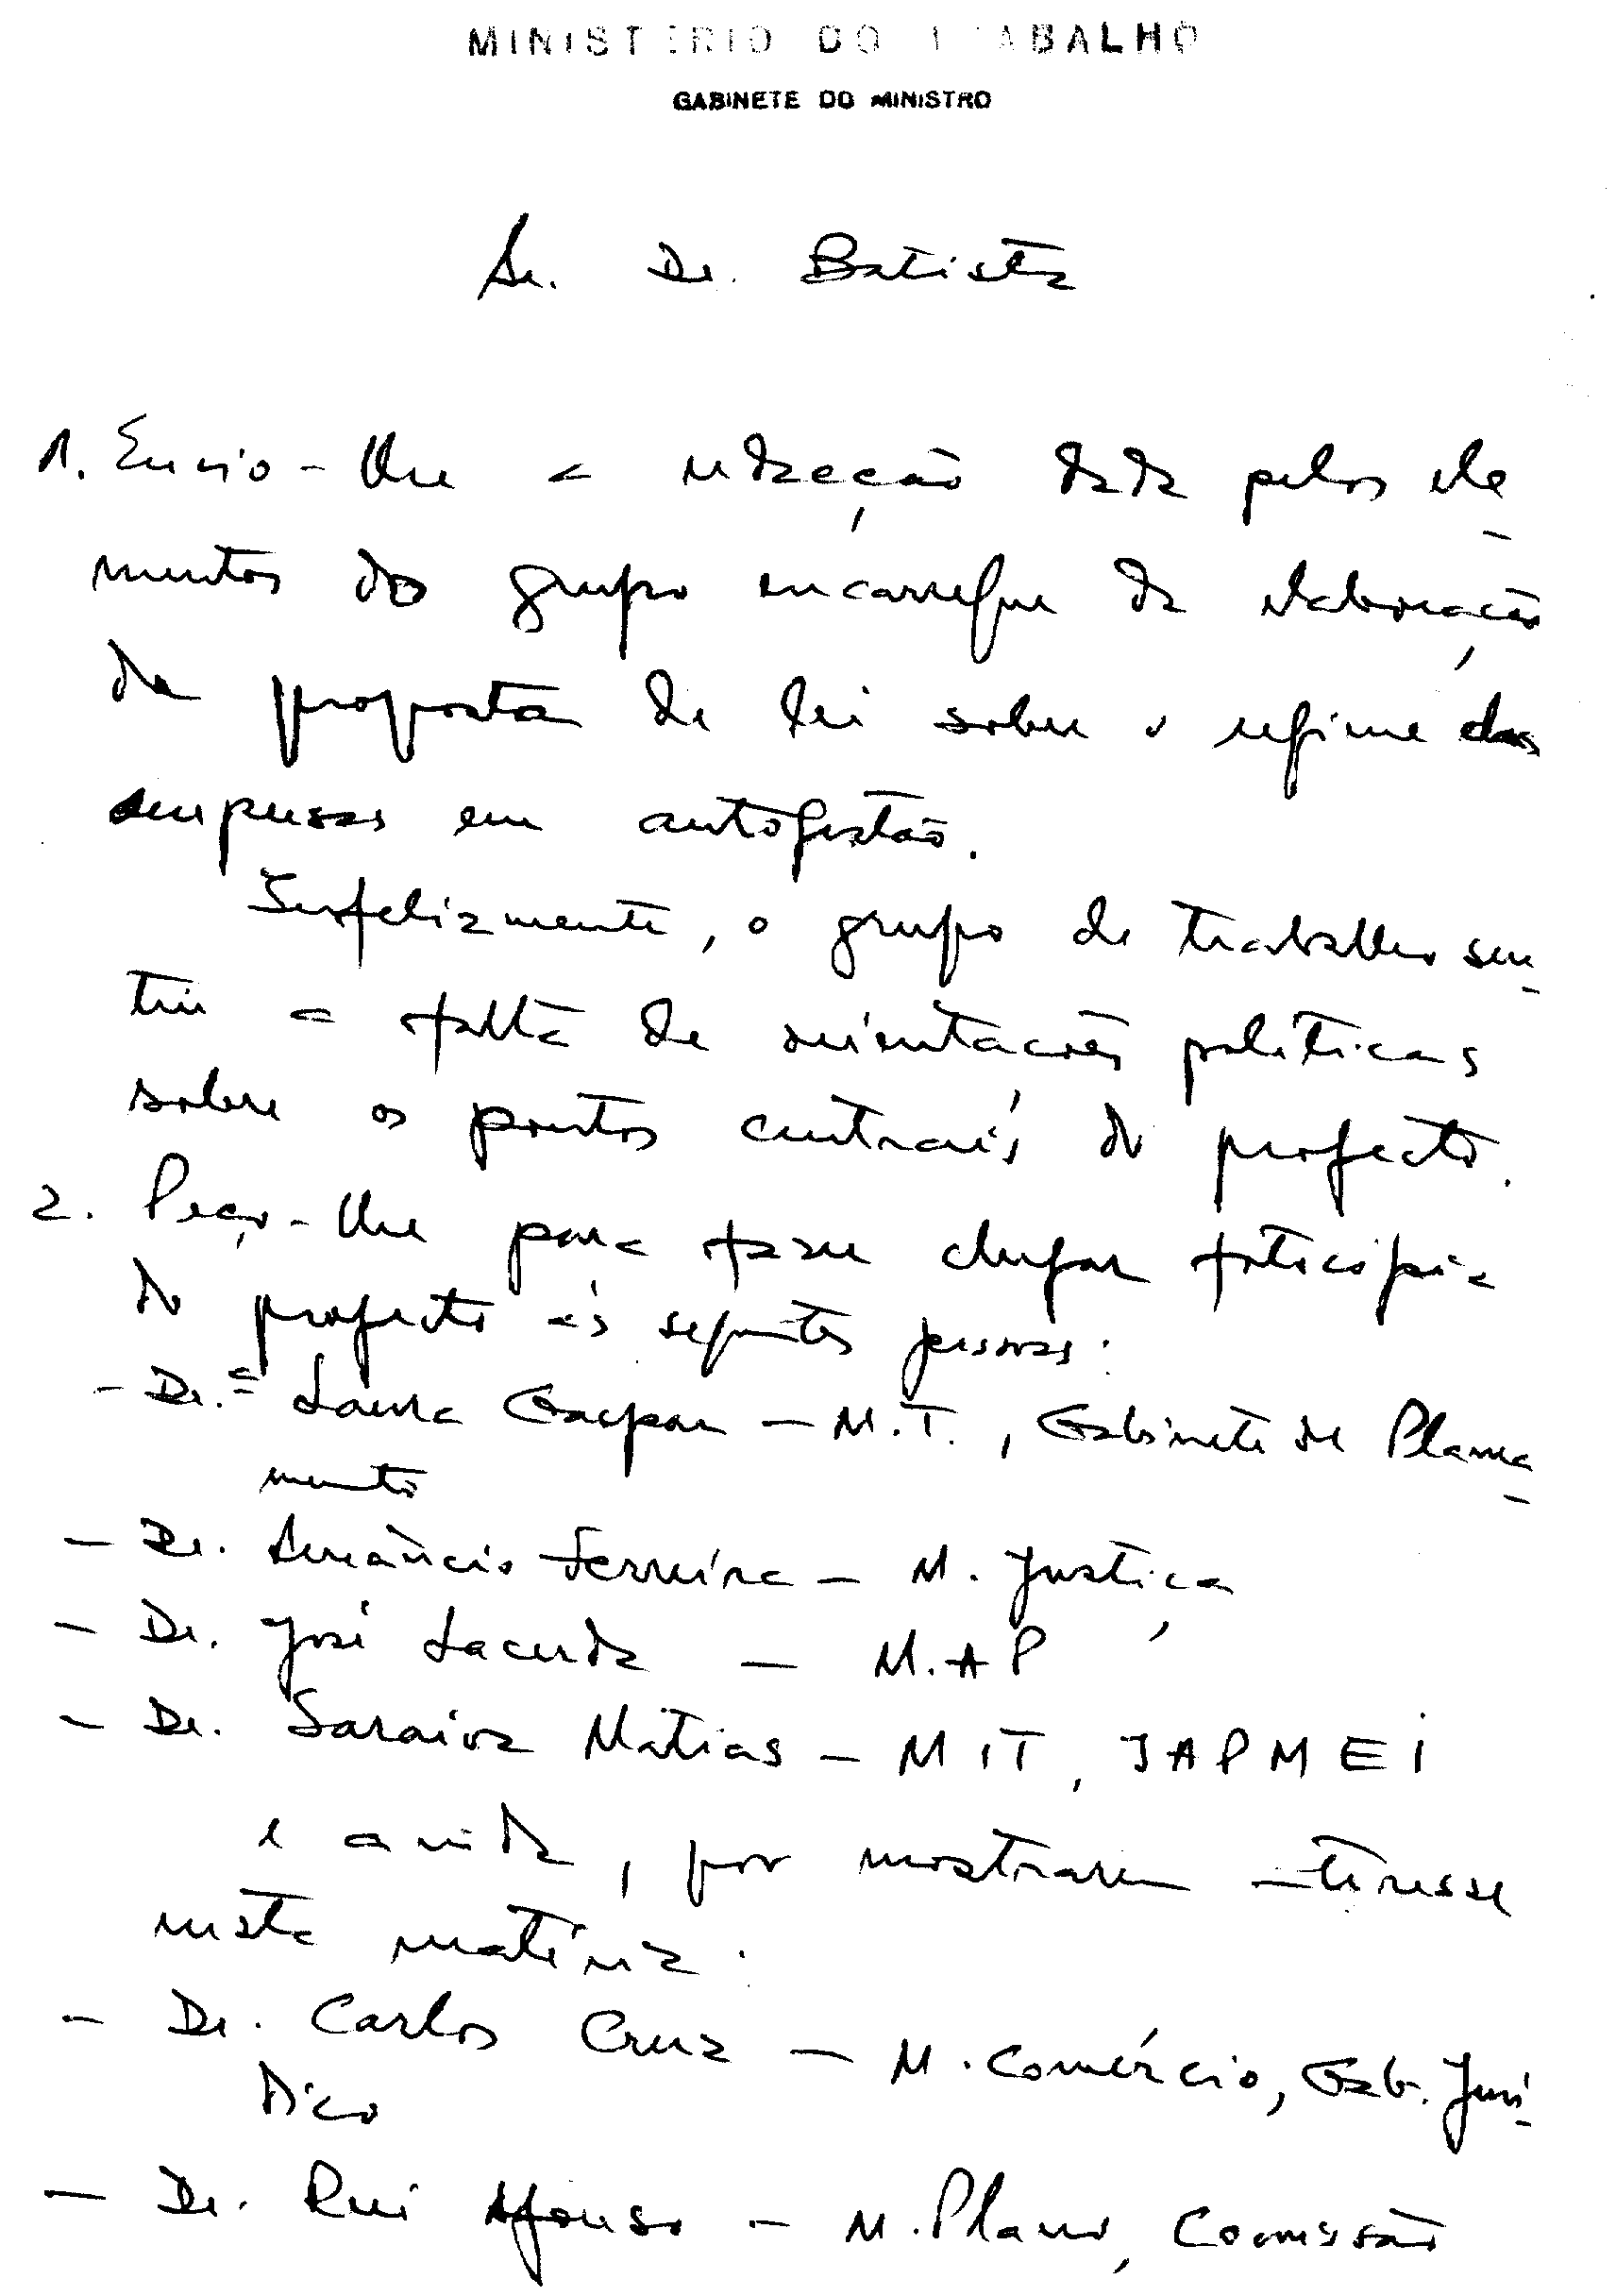 MINISTÉRIO DO TRABALHO
GABINETE DO MINISTRO
Sr. Dr. Batista
1. Envio-lhe a redacção dada pelos ele-
mentos do grupo encarregue da elaboração
da proposta de lei sobre o regime das
empresas em autogestão.
Infelizmente, o grupo de trabalho sen-
tiu a falta de orientações políticas
sobre os pontos centrais do projecto.
2. Peço-lhe para fazer chegar fotocópia
do projecto às seguintes pessoas:
- Dr.ª Laura Gaspar - M.T., Gabinete de Planea-
mento
- Dr. Amâncio Ferreira - M. Justiça
- Dr. José Lacerda - M.AP
- Dr. Saraiva Matias - MIT, IAPMEI
e ainda, por mostrarem interesse
nesta matéria:
- Dr. Carlos Cruz - M. Comércio, Gab. Jurí-
dico
- Dr. Rui Afonso - M. Plano, Comissão